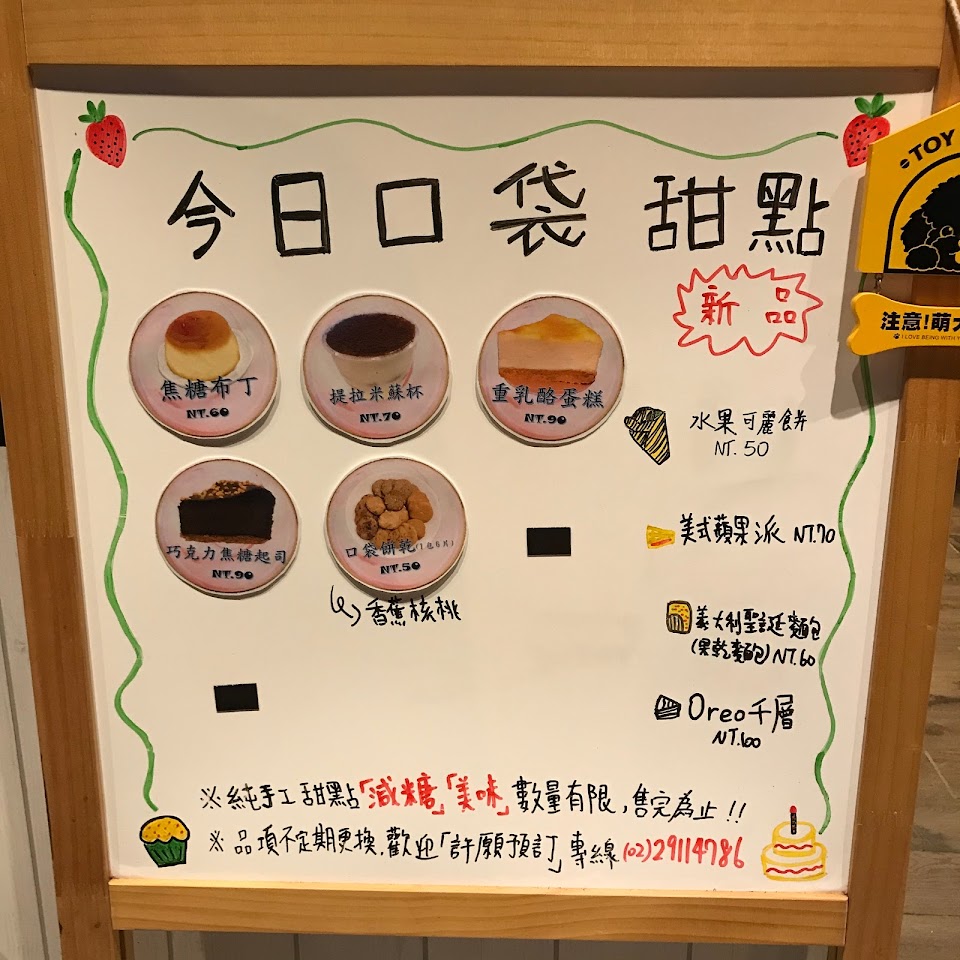 今日口袋 甜點
新品
焦糖布丁
NT.60
提拉米蘇杯
NT.70
重乳酪蛋糕
NT.90
水果可麗餅
NT.50
巧克力焦糖起司
NT.90
口袋餅乾(1包6片)
NT.50
香蕉核桃
美式蘋果派 NT.70
義大利聖誕麵包
(果乾麵包)NT.60
Oreo千層
NT.100
※純手工甜點「減糖」「美味」數量有限,售完為止!!
※品項不定期更換,歡迎「許願預訂」專線(02)29114786
TOY
注意!萌
I LOVE BEING WITH